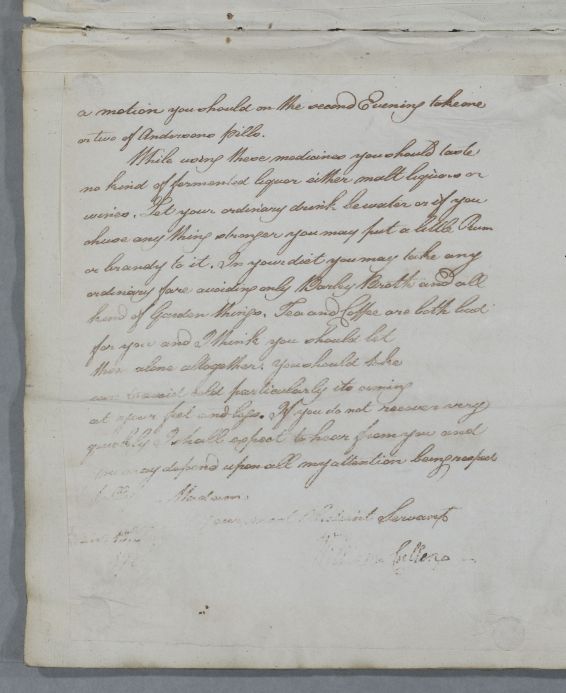 a motion you should on the second Evening take one
or two of Andersons pills.
While using these medicines you should taste
no kind of fermented liquor either malt liquors or
wines. Let your ordinary drink be water or if you
chuse any thing stronger you may put a little Rum
or brandy to it. In your diet you may take any
ordinary fare avoiding only Barley Broth and all
kind of Garden things. Tea and Coffee are both bad
for you and I think you should let
them alone altogether. You should take
care to avoid cold particularly its coming
at your feet and legs. If you do not recover very
quickly I shall expect to hear from you and
you may depend upon all my attention being respect
Madam.
Your most Obedient Servant
William Cullen